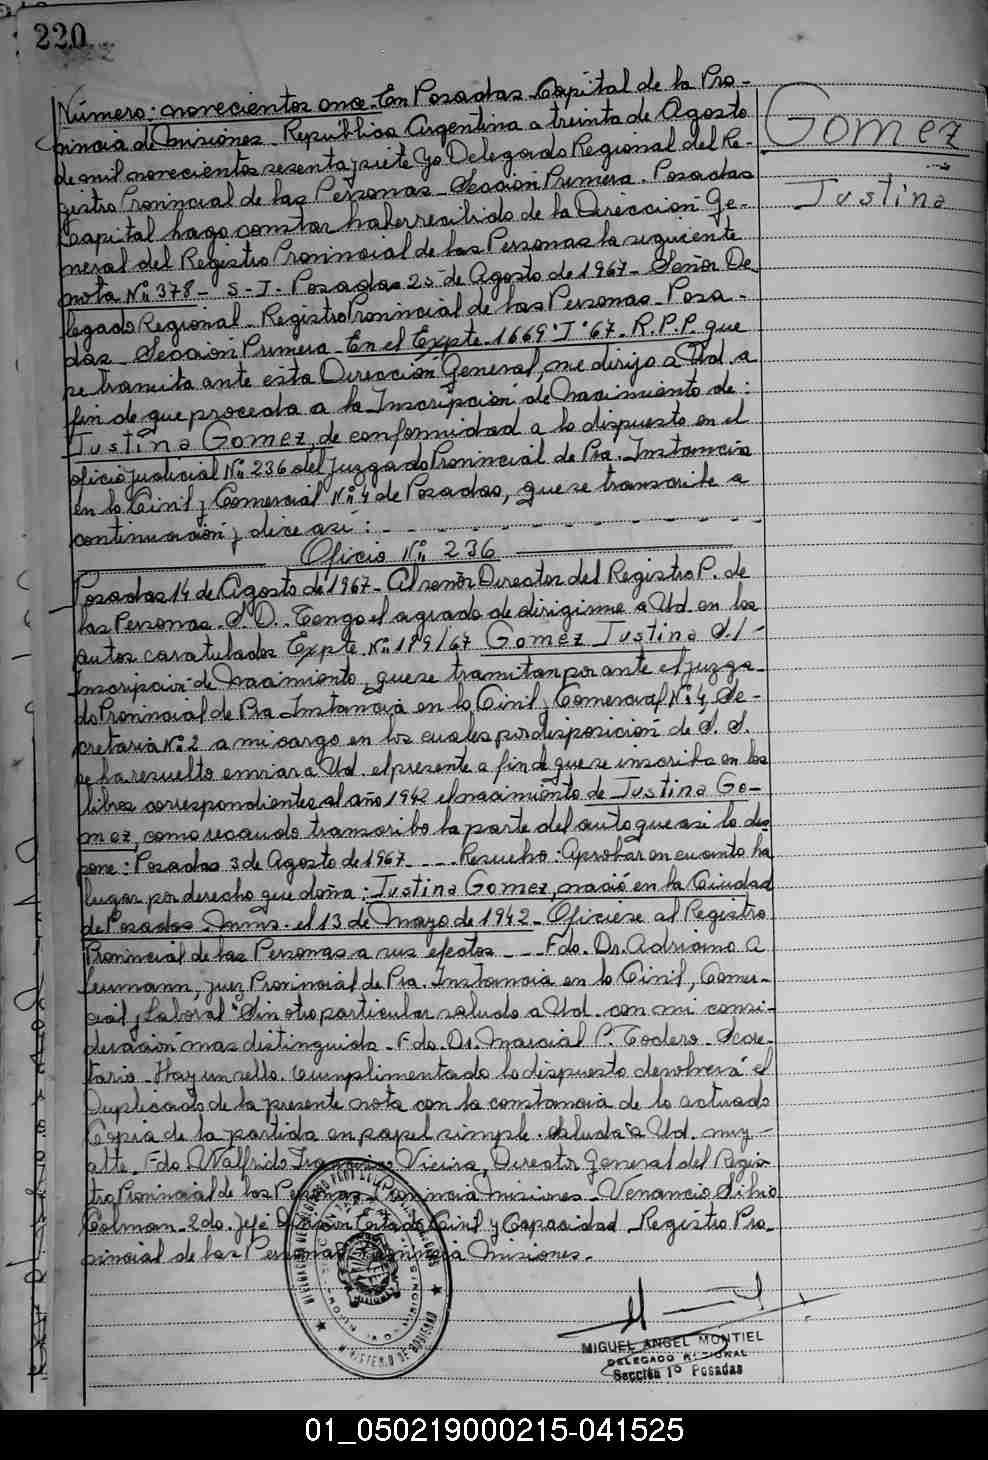 220
Gomez
Justina
Número: novecientos once. En Posadas Capital de la Pro-
vincia de Misiones República Argentina a treinta de Agosto
de mil novecientos sesenta y siete yo Delegado Regional del Re-
gistro Provincial de las Personas Sección Primera. Posadas
Capital hago constar haber recibido de la Dirección Ge-
neral del Registro Provincial de las Personas la siguiente
nota Nº 378 - S-J- Posadas 25 de Agosto de 1967- Señor De
legado Regional Registro Provincial de las Personas Posa-
das Sección Primera En el Expte 1669 "J" 67. R.P.P. que
se tramita ante esta Dirección General, me dirijo a Ud. a
fin de que proceda a la Inscripción de Nacimiento de:
Justina Gomez, de conformidad a lo dispuesto en el
oficio judicial Nº 236 del Juzgado Provincial de Pra. Instancia
en lo Civil y Comercial Nº 4 de Posadas, que se transcribe a
continuación y dice así:
Oficio Nº 236
Posadas 14 de Agosto de 1967- Al señor Director del Registro P. de
las Personas. S. D. Tengo el agrado de dirigirme a Ud. en los
autos caratulados Expte Nº 179/67 Gomez Justina S./-
Inscripción de Nacimiento, que se tramitan por ante el Juzga-
do Provincial de Pra Instancia en lo Civil y Comercial Nº 4, Se-
cretaria Nº 2 a mi cargo en los cuales por disposición de S. S.
se ha resuelto enviar a Ud. el presente a fin de que se inscriba en los
libros correspondientes al año 1942 el nacimiento de Justina Go-
mez, como recaudo transcribo la parte del auto que así lo dis
pone: Posadas 3 de Agosto de 1967 ---- Resuelvo: Aprobar en cuanto ha
lugar por derecho que doña: Justina Gomez, nació en la Ciudad
de Posadas Mnes. el 13 de Mayo de 1942- Oficiese al Registro
Provincial de las Personas a sus efectos --- Fdo. Dr. Adriano A
Leumann, juez Provincial de Pra. Instancia en lo Civil, Comer-
cial y Laboral" Sin otro particular saludo a Ud. con mi consi-
deración mas distinguida - Fdo. Dr. Marcial C. Todero Secre-
tario. Hay un sello. Cumplimentado lo dispuesto devolverá el
Duplicado de la presente nota con la constancia de lo actuado
Copia de la partida en papel simple. Saluda a Ud. muy
atte. Fdo Walfrido Francisco Vieira, Director General del Regis-
tro Provincial de las Personas Provincia Misiones- Venancio Silvio
Colman- 2do. Jefe División Estado Civil y Capacidad - Registro Pro-
vincial de las Personas Provincia Misiones.
MINISTERIO DE GOBIERNO
MIGUEL ANGEL MONTIEL
DELEGADO REGIONAL
Sección 1º Posadas
01_050219000215-041525